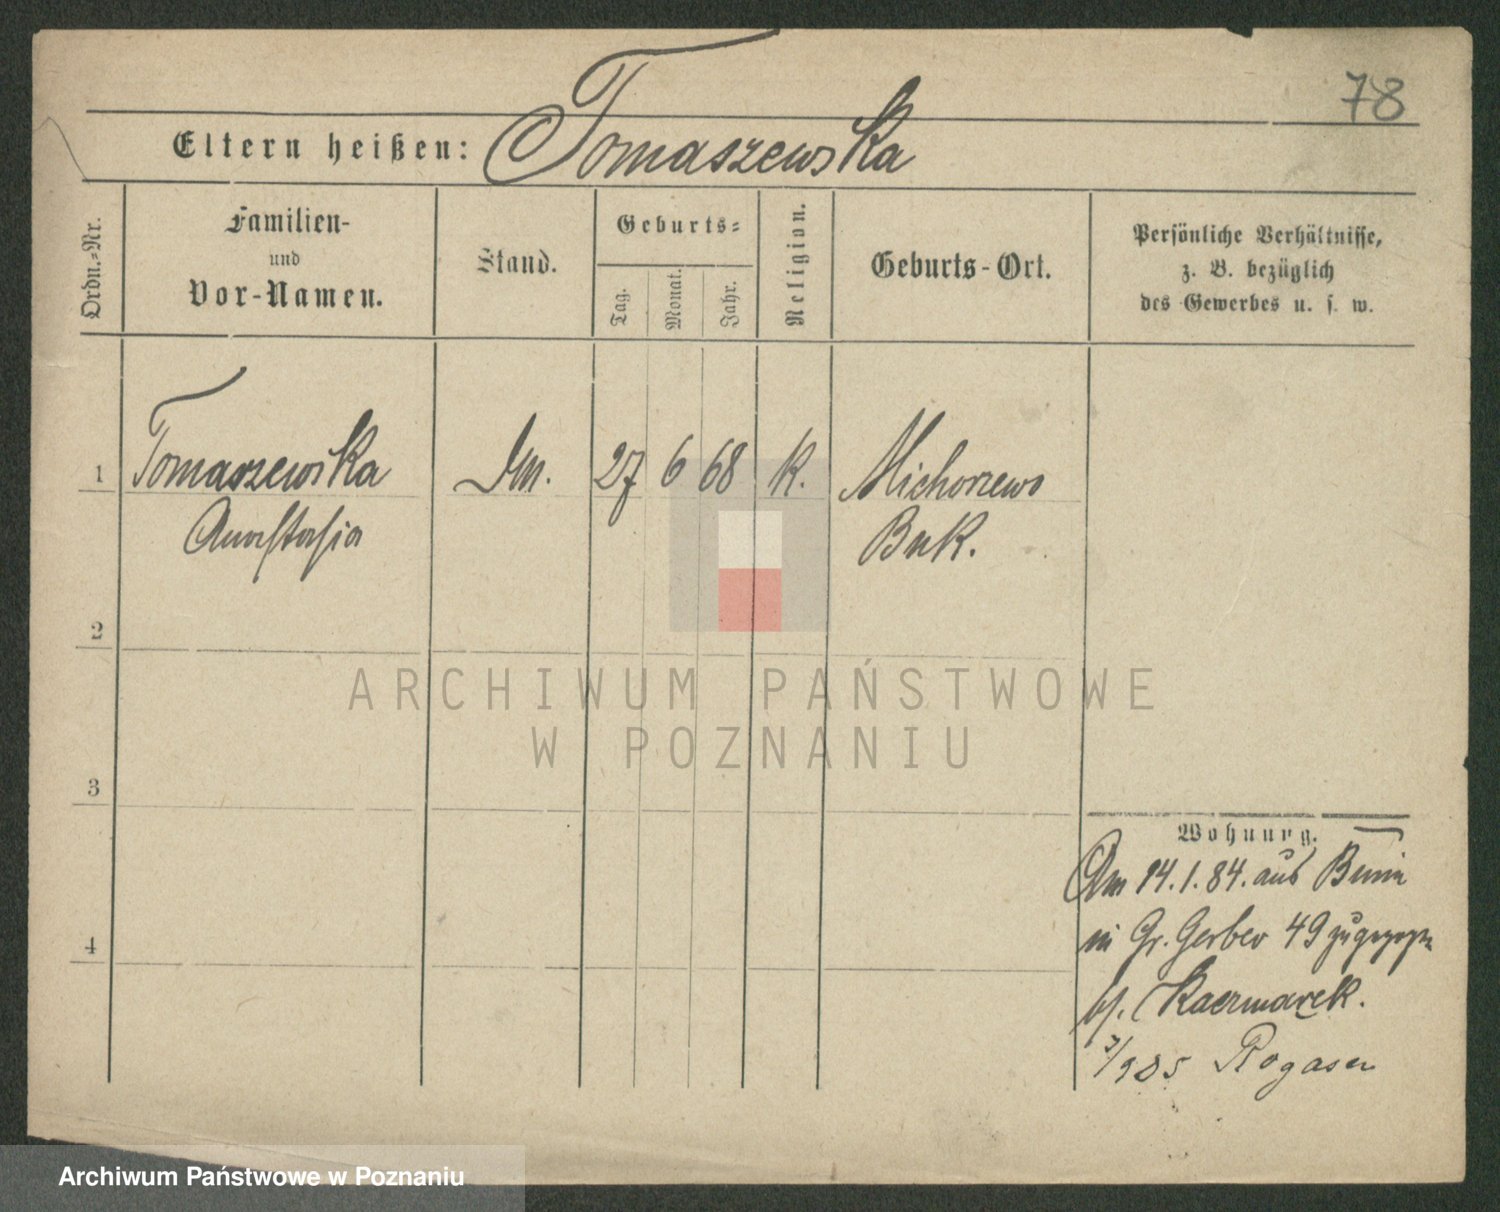 78
Eltern heißen: Tomaszewska
Ordn.=Nr.
Familien-
und
Vor-Namen.
Stand.
Geburts=
Tag.
Monat.
Jahr.
Religion.
Geburts-Ort.
Persönliche Verhältnisse,
z. B. bezüglich
des Gewerbes u. s. w.
1 Tomaszewska 27 6 68 K. Michorzewo
Anastasia Buk.
2
ARCHIWUM PAŃSTWOWE
W POZNANIU
3
Wohnung.
Am 14.1.84. aus
in Gr. Gerber 49 zugezogen
bj. Kaczmarek.
3/9 85 Rogasen
4
Archiwum Państwowe w Poznaniu